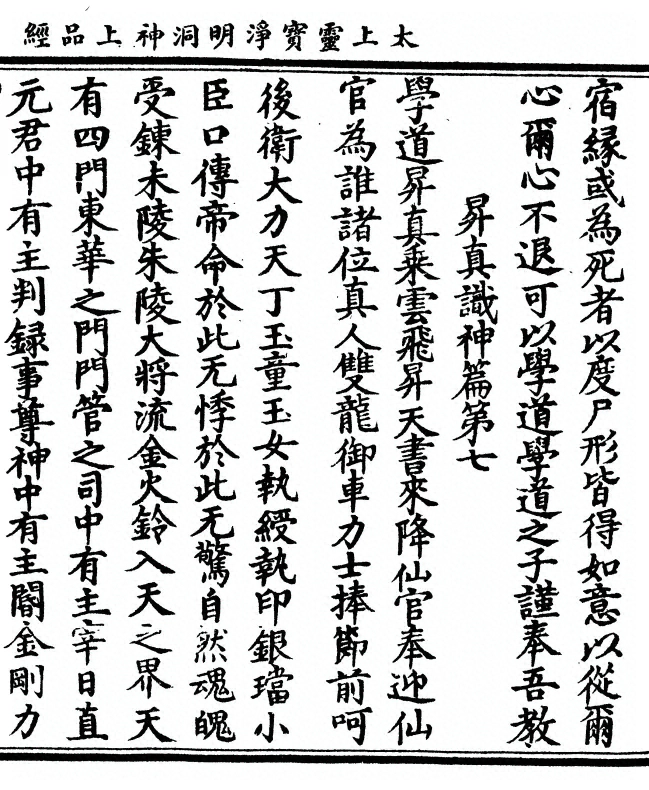 太上靈寶淨明洞神上品經
宿縁或為死者以度尸形皆得如意以從爾
心爾心不退可以學道學道之子謹奉吾教
昇真識神篇第七
學道昇真乘雲飛昇天書來降仙官奉迎仙
官為誰諸位真人雙龍御車力士捧節前呵
後衛大力天丁玉童玉女執綬執印銀璫小
臣口傳帝命於此无悸於此无驚自然魂魄
受鍊未陵朱陵大將流金火鈴入天之界天
有四門東華之門門管之司中有主宰日直
元君中有主判録事尊神中有主閽金剛力